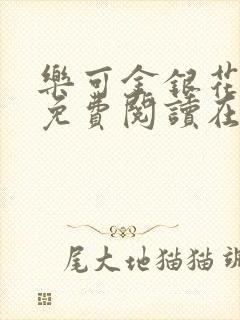 樂可金銀花
免費閱讀在
尾大地猫猫